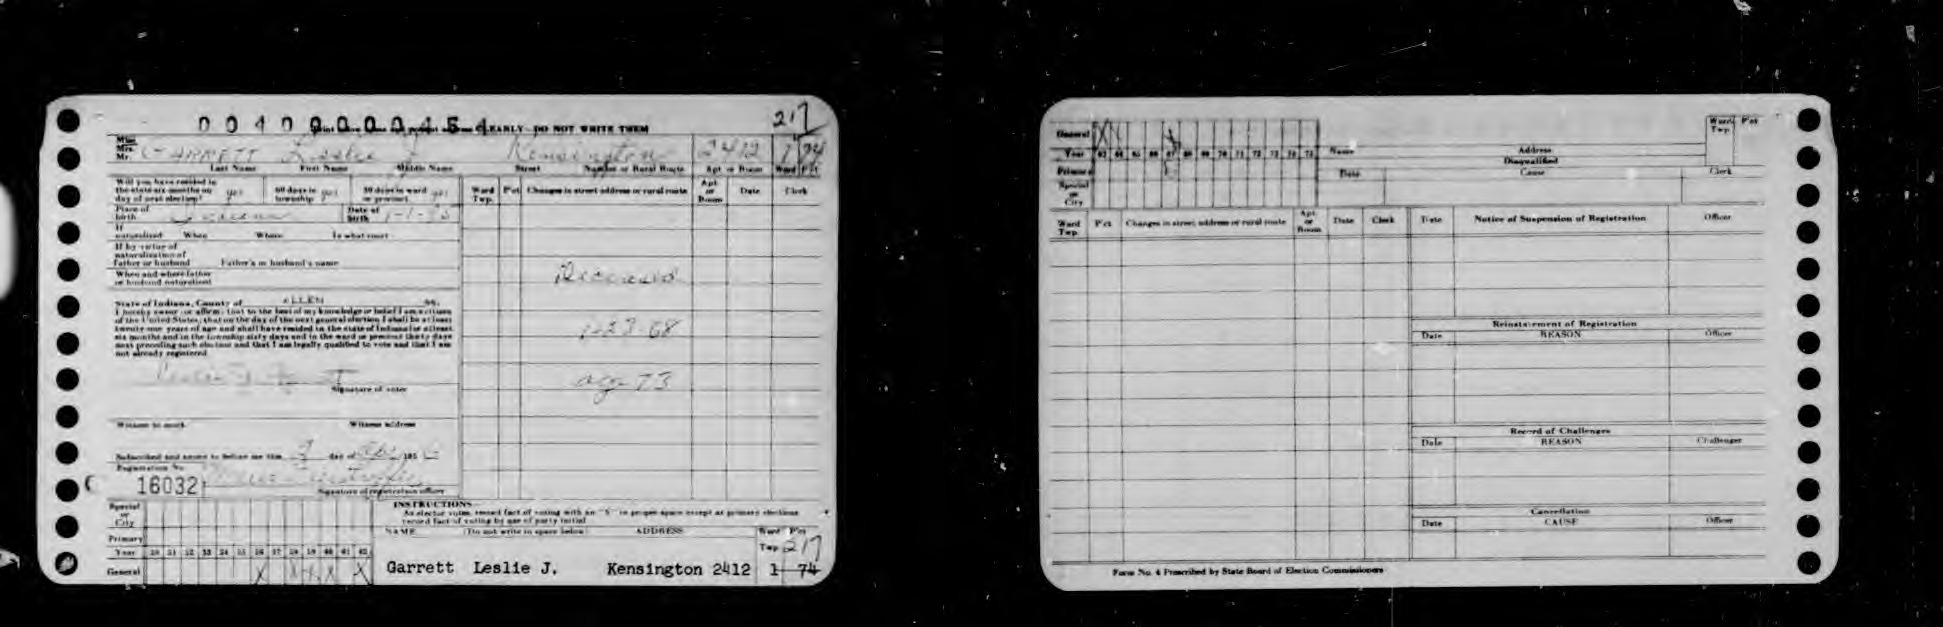 0040000454
217
CLEARLY - DO NOT WRITE THEM
Miss
Mrs.
Mr. GARRETT Leslie J Kensington 2412 1 74
Last Name First Name Middle Name Street Number or Rural Route Apt or Room Ward Pct
Will you have resided in the state six months on day of next election? yes 60 days in township yes 30 days in ward or precinct yes
Ward Twp. Pct Changes in street address or rural route Apt or Room Date Clerk
Place of birth Date of birth
If naturalized When Where In what court
If by virtue of naturalization of father or husband Father's or husband's name
When and where father or husband naturalized
Deceased
1-23-68
age 73
State of Indiana, County of ALLEN ss.
I hereby swear or affirm that to the best of my knowledge or belief I am a citizen
of the United States; that on the day of the next general election I shall be at least
twenty-one years of age and shall have resided in the state of Indiana for at least
six months and in the township sixty days and in the ward or precinct thirty days
next preceding such election and that I am legally qualified to vote and that I am
not already registered
Signature of voter
Witness to mark Witness address
Subscribed and sworn to before me this day of 195
Registration No.
16032
Signature of registration officer
Special or City
Primary
Year 50 51 52 53 54 55 56 57 58 59 60 61 62
General X X X X X
INSTRUCTIONS
As elector votes, record fact of voting with an "X" in proper space except at primary elections
record fact of voting by use of party initial
NAME (Do not write in space below) ADDRESS Ward Twp Pct
217
Garrett Leslie J. Kensington 2412 1 74
General
Year 63 64 65 66 67 68 69 70 71 72 73 74 75
Primary
Special or City
Name Address Ward Twp. Pct
Disqualified
Date Cause Clerk
Ward Twp. Pct Changes in street address or rural route Apt. or Room Date Clerk
Date Notice of Suspension of Registration Officer
Reinstatement of Registration
Date REASON Officer
Record of Challenges
Date REASON Challenger
Cancellation
Date CAUSE Officer
Form No. 4 Prescribed by State Board of Election Commissioners